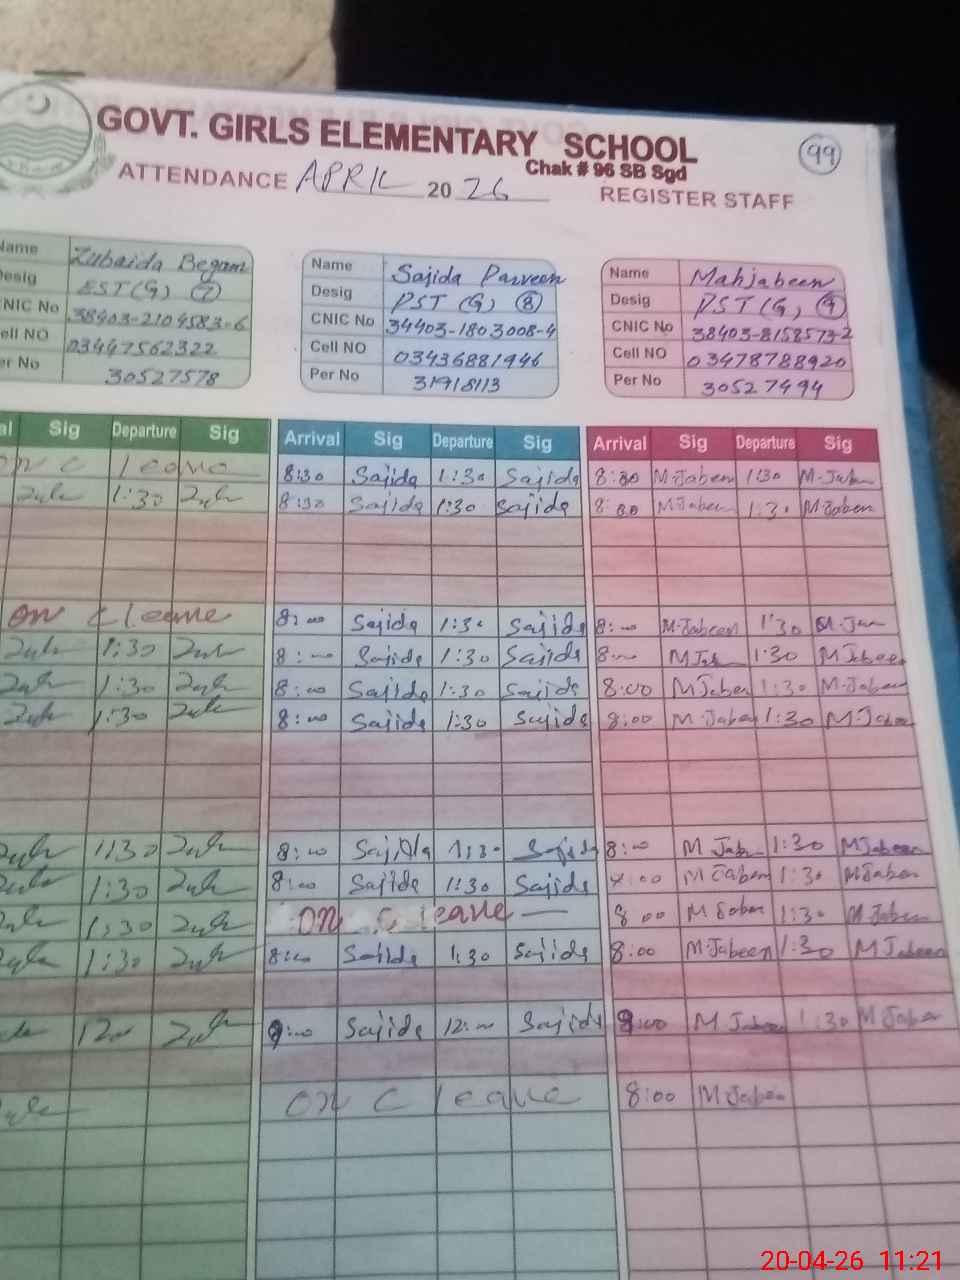 GOVT. GIRLS ELEMENTARY SCHOOL
Chak # 96 SB Sgd
99
ATTENDANCE APRIL 2026 REGISTER STAFF
Name Zubaida Begam
Desig EST (G) 7
CNIC No 38403-2104583-6
Cell NO 03447562322
Per No 30527578
Name Sajida Parveen
Desig PST (G) 8
CNIC No 34403-1803008-4
Cell NO 03436881946
Per No 31918113
Name Mahjabeen
Desig PST (G) 9
CNIC No 38403-8158573-2
Cell NO 03478788920
Per No 30527494
Sig Departure Sig Arrival Sig Departure Sig Arrival Sig Departure Sig
on c leave 8:30 Sajida 1:30 Sajida 8:30 M-Jabeen 1:30
1:30 8:30 Sajida 1:30 Sajida 1:30 M-Jaben
on c leave 8:00 Sajida 1:30 Sajida 8:00 M-Jabeen 1:30
1:30 8:00 Sajida 1:30 Sajida 8:00 1:30 M Jabeen
1:30 8:00 Sajida 1:30 Sajida 8:00 M Jaben 1:30 M-Jaben
1:30 8:00 Sajida 1:30 Sajida 8:00 M-Jaben 1:30 M-Jaben
1:30 8:00 Sajida 1:30 Sajida 8:00 M Jabn 1:30 M Jabeen
1:30 8:00 Sajida 1:30 Sajida 8:00 M Jaben 1:30 M Jaben
1:30 on c leave 8:00 M Jaben 1:30 M Jaben
1:30 8:00 Sajida 1:30 Sajida 8:00 M-Jabeen 1:30 M Jabeen
12:00 9:00 Sajida 12:00 Sajida 9:00 M Jaben 1:30 M Jaben
on c leave 8:00 M Jaben
20-04-26 11:21